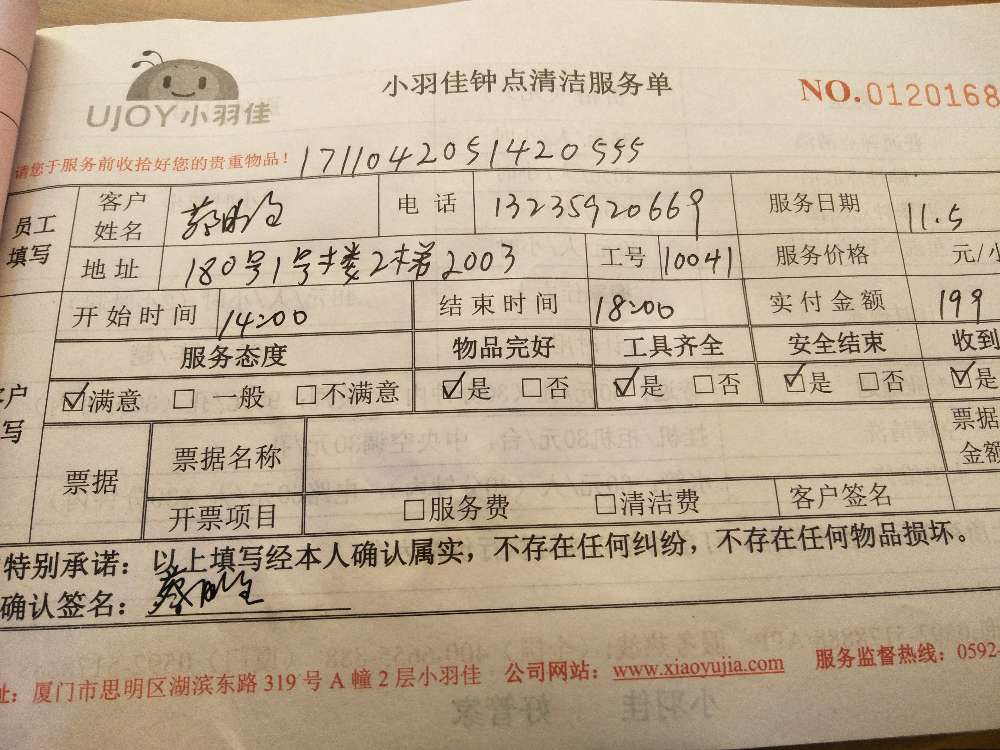 UJOY小羽佳
小羽佳钟点清洁服务单
NO.0120168
请您于服务前收拾好您的贵重物品！
1711042051420555
员工填写 客户姓名 电话 13235920669 服务日期 11.5
地址 180号1号楼2梯2003 工号 10041 服务价格 元/小
开始时间 14:00 结束时间 18:00 实付金额 199
服务态度 物品完好 工具齐全 安全结束 收到
☑满意 □一般 □不满意 ☑是 □否 ☑是 □否 ☑是 □否 ☑是
票据 票据名称 票据金额
开票项目 □服务费 □清洁费 客户签名
特别承诺：以上填写经本人确认属实，不存在任何纠纷，不存在任何物品损坏。
确认签名：
址：厦门市思明区湖滨东路 319 号 A 幢 2 层小羽佳 公司网站：www.xiaoyujia.com 服务监督热线：0592-